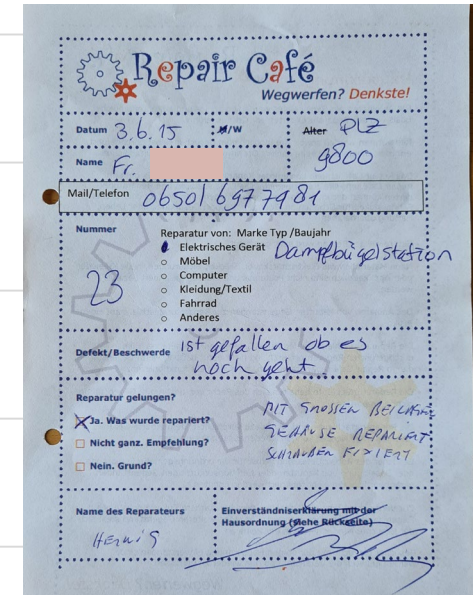 Repair Café
Wegwerfen? Denkste!
Datum 3.6.15 M/W Alter PLZ
Name Fr. 9800
Mail/Telefon 0650/6977981
Nummer 23
Reparatur von: Marke Typ /Baujahr
Elektrisches Gerät Dampfbügelstation
Möbel
Computer
Kleidung/Textil
Fahrrad
Anderes
Defekt/Beschwerde ist gefallen ob es
noch geht.
Reparatur gelungen?
Ja. Was wurde repariert?
Nicht ganz. Empfehlung?
Nein. Grund?
MIT GROSSEN
GEHÄUSE REPARIERT
SCHRAUBEN FIXIERT
Name des Reparateurs
HERWIG
Einverständniserklärung mit der
Hausordnung (siehe Rückseite)